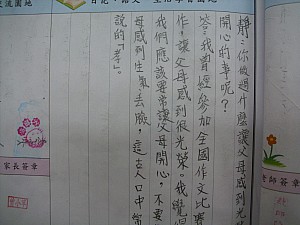 靜:你做過什麼讓父母感到光榮
開心的事呢?
答:我曾經參加全國作文比賽
作,讓父母感到很光榮。我覺得
我們應該要常讓父母開心,不要
母感到生氣丟臉,這古人口中
說的「孝」。
家長簽章
老師簽章
交流園地